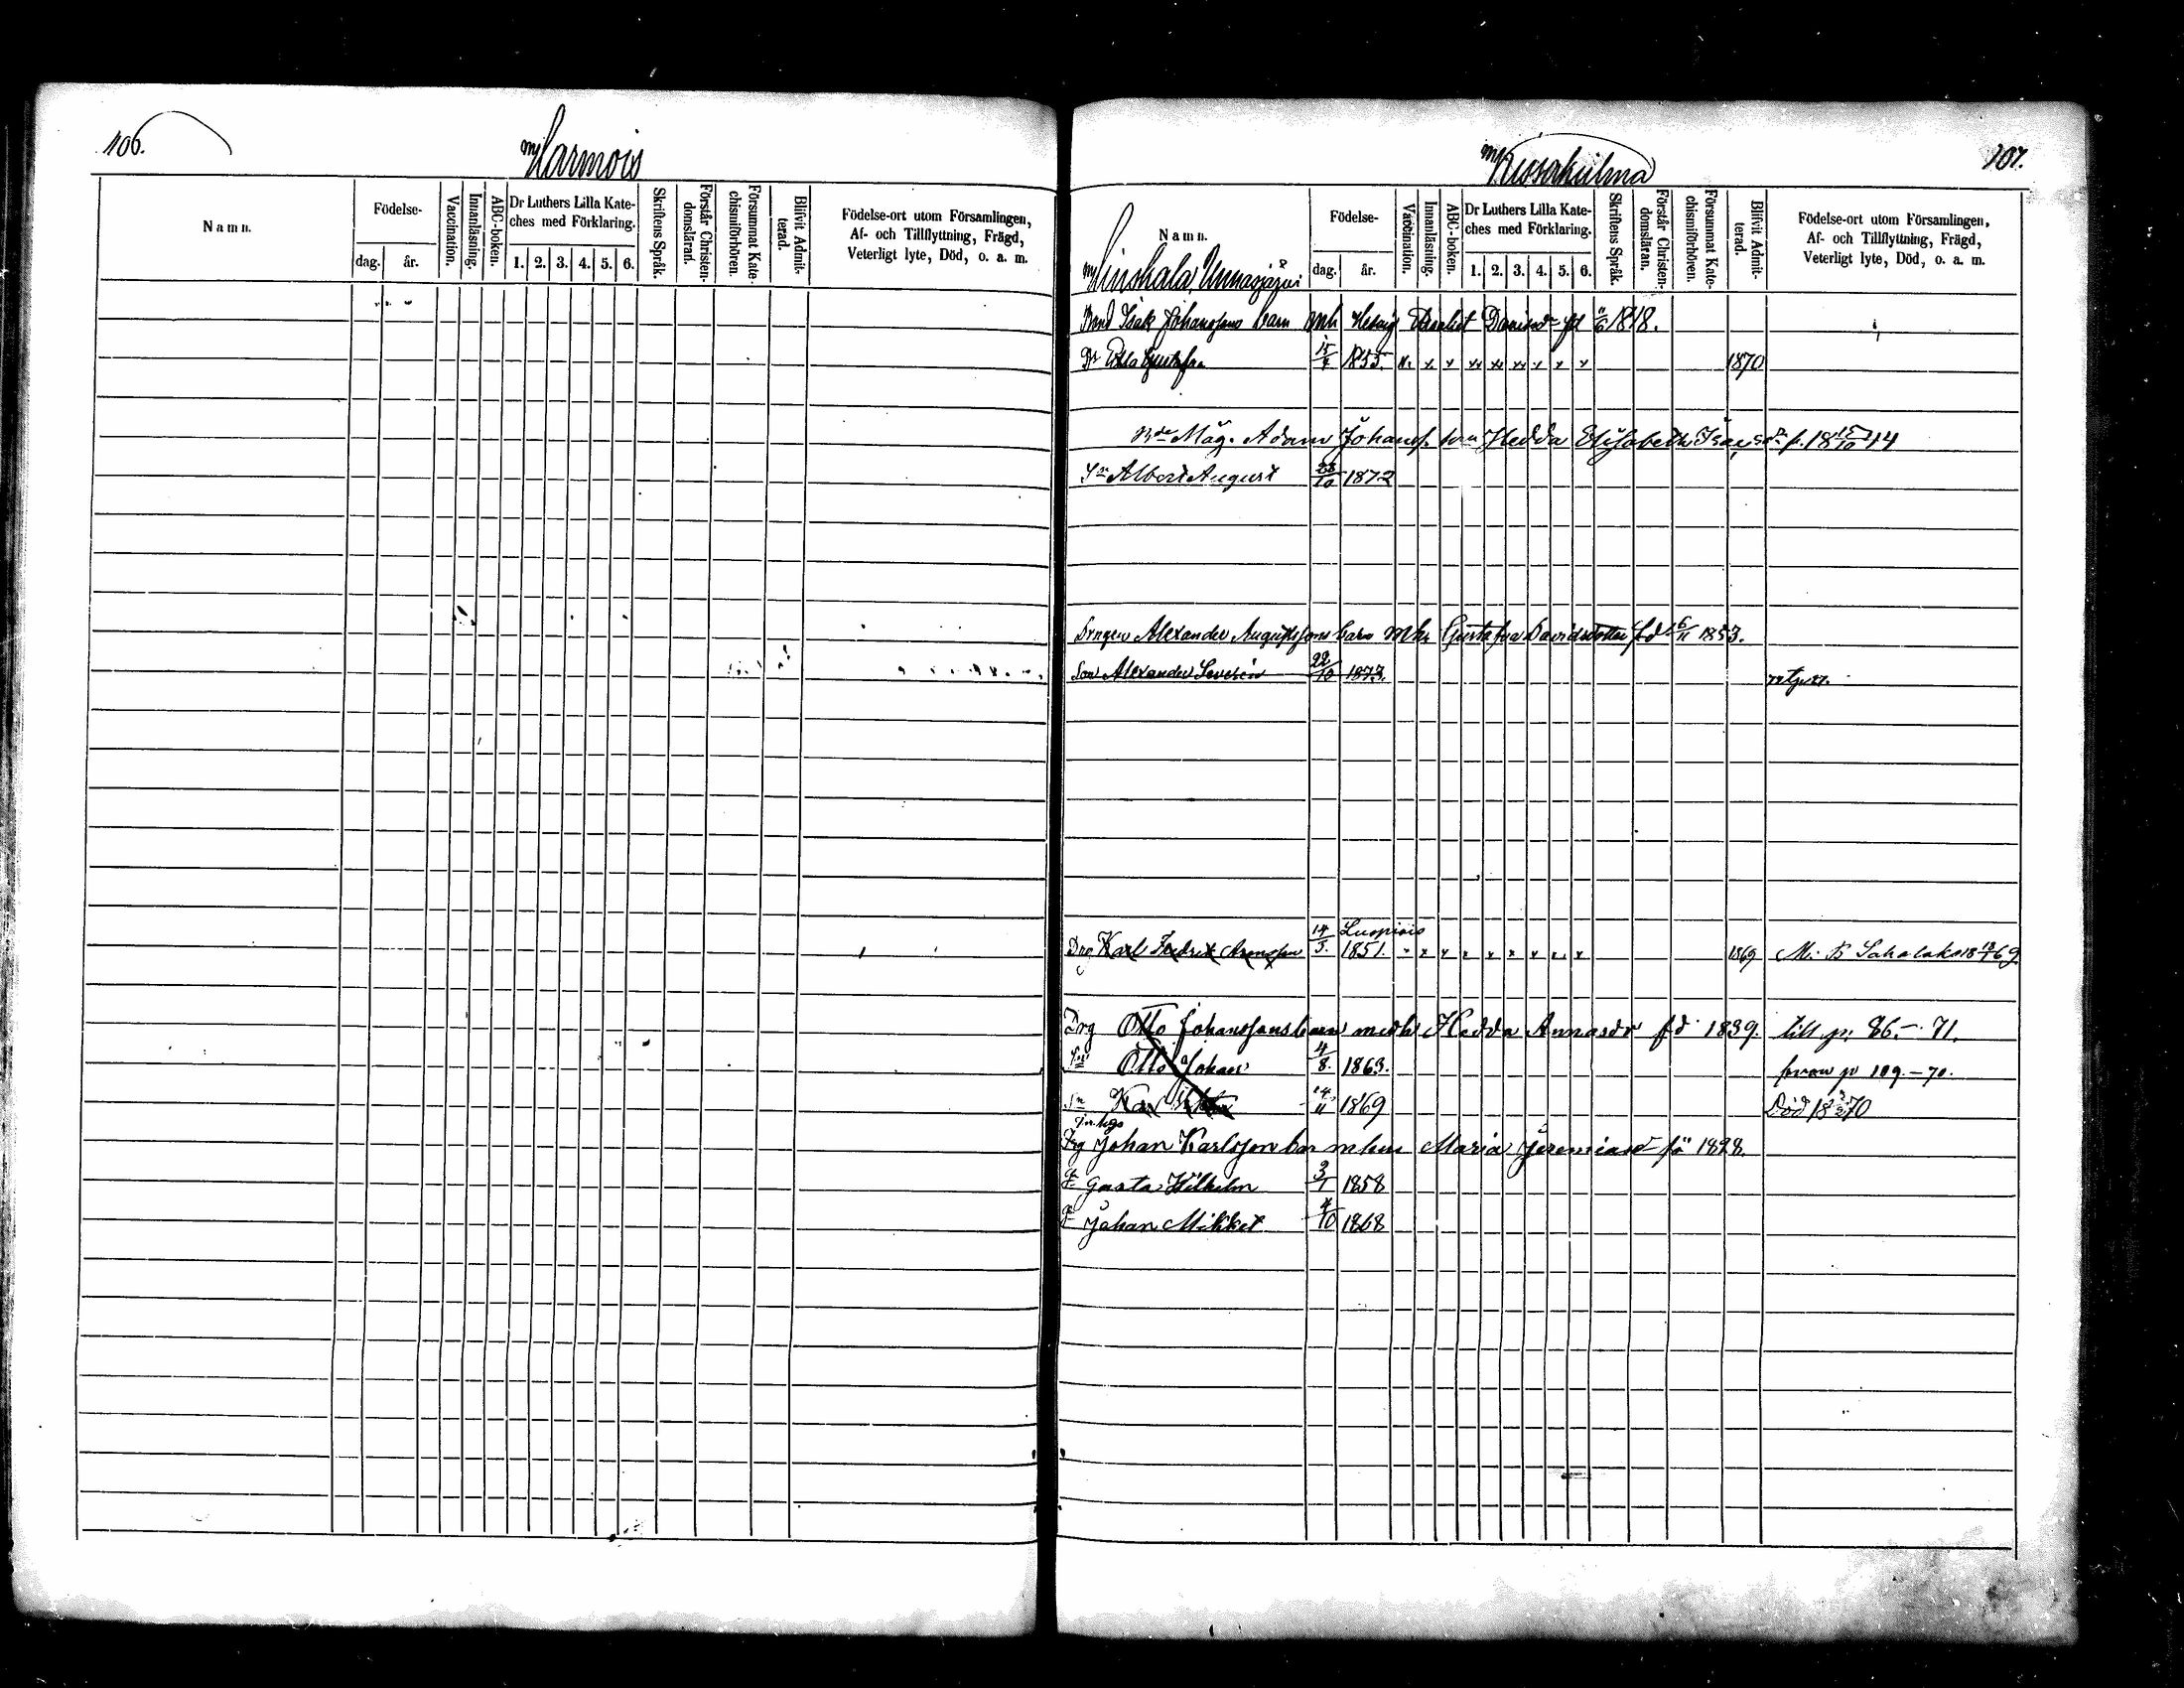 106.
Harmois
Namn.
Födelse-
dag.
år.
Vaccination.
Innanläsning.
ABC-boken.
Dr Luthers Lilla Kate-
ches med Förklaring.
1. 2. 3. 4. 5. 6.
Skriftens Språk.
Förstår Christen-
domsläran.
Försummat Kate-
chismiförhören.
Blifvit Admit-
terad.
Födelse-ort utom Församlingen,
Af- och Tillflyttning, Frägd,
Veterligt lyte, Död, o. a. m.
107.
Kissakulma
Namn.
Födelse-
dag.
år.
Vaccination.
Innanläsning.
ABC-boken.
Dr Luthers Lilla Kate-
ches med Förklaring.
1. 2. 3. 4. 5. 6.
Skriftens Språk.
Förstår Christen-
domsläran.
Försummat Kate-
chismiförhören.
Blifvit Admit-
terad.
Födelse-ort utom Församlingen,
Af- och Tillflyttning, Frägd,
Veterligt lyte, Död, o. a. m.
Isak Johanssons barn mh Hedvig 1818.
Gustafva 15/4 1855. x x x x x x x x x 1870
Måg. Adam Johanss. barn Hedda Elisabeth Isacsdr f. 18 15/10 44
Sn Albert August 23/10 1872
Drngen Alexander Augustssons barn mhu Gustafva Davidsdotter fd 6/11 1853.
Son Alexander Severin 22/10 1873.
Luopiois
Drg Karl Fredrik 14/3. 1851. x x x x x x x x 1869 M. B Sahalaks 18 69
Drg Otto Johanssons barn medh Hedda Annasdr fd 1839. till p. 86.-71.
Sn Otto Johan 4/8. 1863. från p 109.-70.
Sn Karl 14/11 1869 Död 18 70
Drg Johan Karlsson bar mhu Maria Jeremiasd fö 1828.
Gusta Wilhelm 3/1 1858
Johan Mikkel 4/10 1868